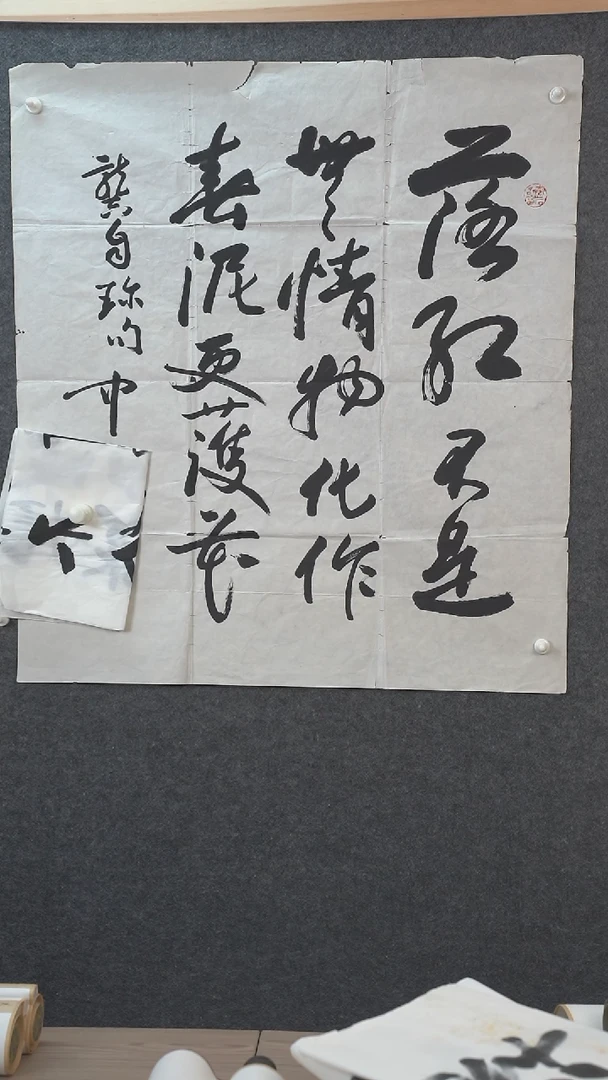 落红不是
无情物化作
春泥更护花
龚自珍句